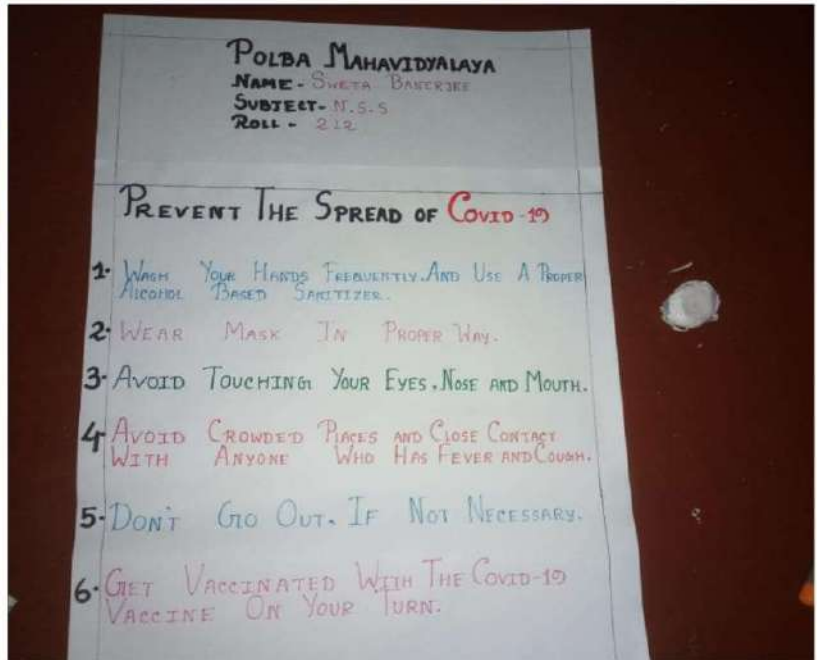 POLBA MAHAVIDYALAYA
NAME- SWETA BANERJEE
SUBJECT- N.S.S
ROLL - 212
PREVENT THE SPREAD OF COVID-19
1. WASH YOUR HANDS FREQUENTLY. AND USE A PROPER
ALCOHOL BASED SANITIZER.
2. WEAR MASK IN PROPER WAY.
3. AVOID TOUCHING YOUR EYES, NOSE AND MOUTH.
4. AVOID CROWDED PLACES AND CLOSE CONTACT
WITH ANYONE WHO HAS FEVER AND COUGH.
5. DON'T GO OUT. IF NOT NECESSARY.
6. GET VACCINATED WITH THE COVID-19
VACCINE ON YOUR TURN.